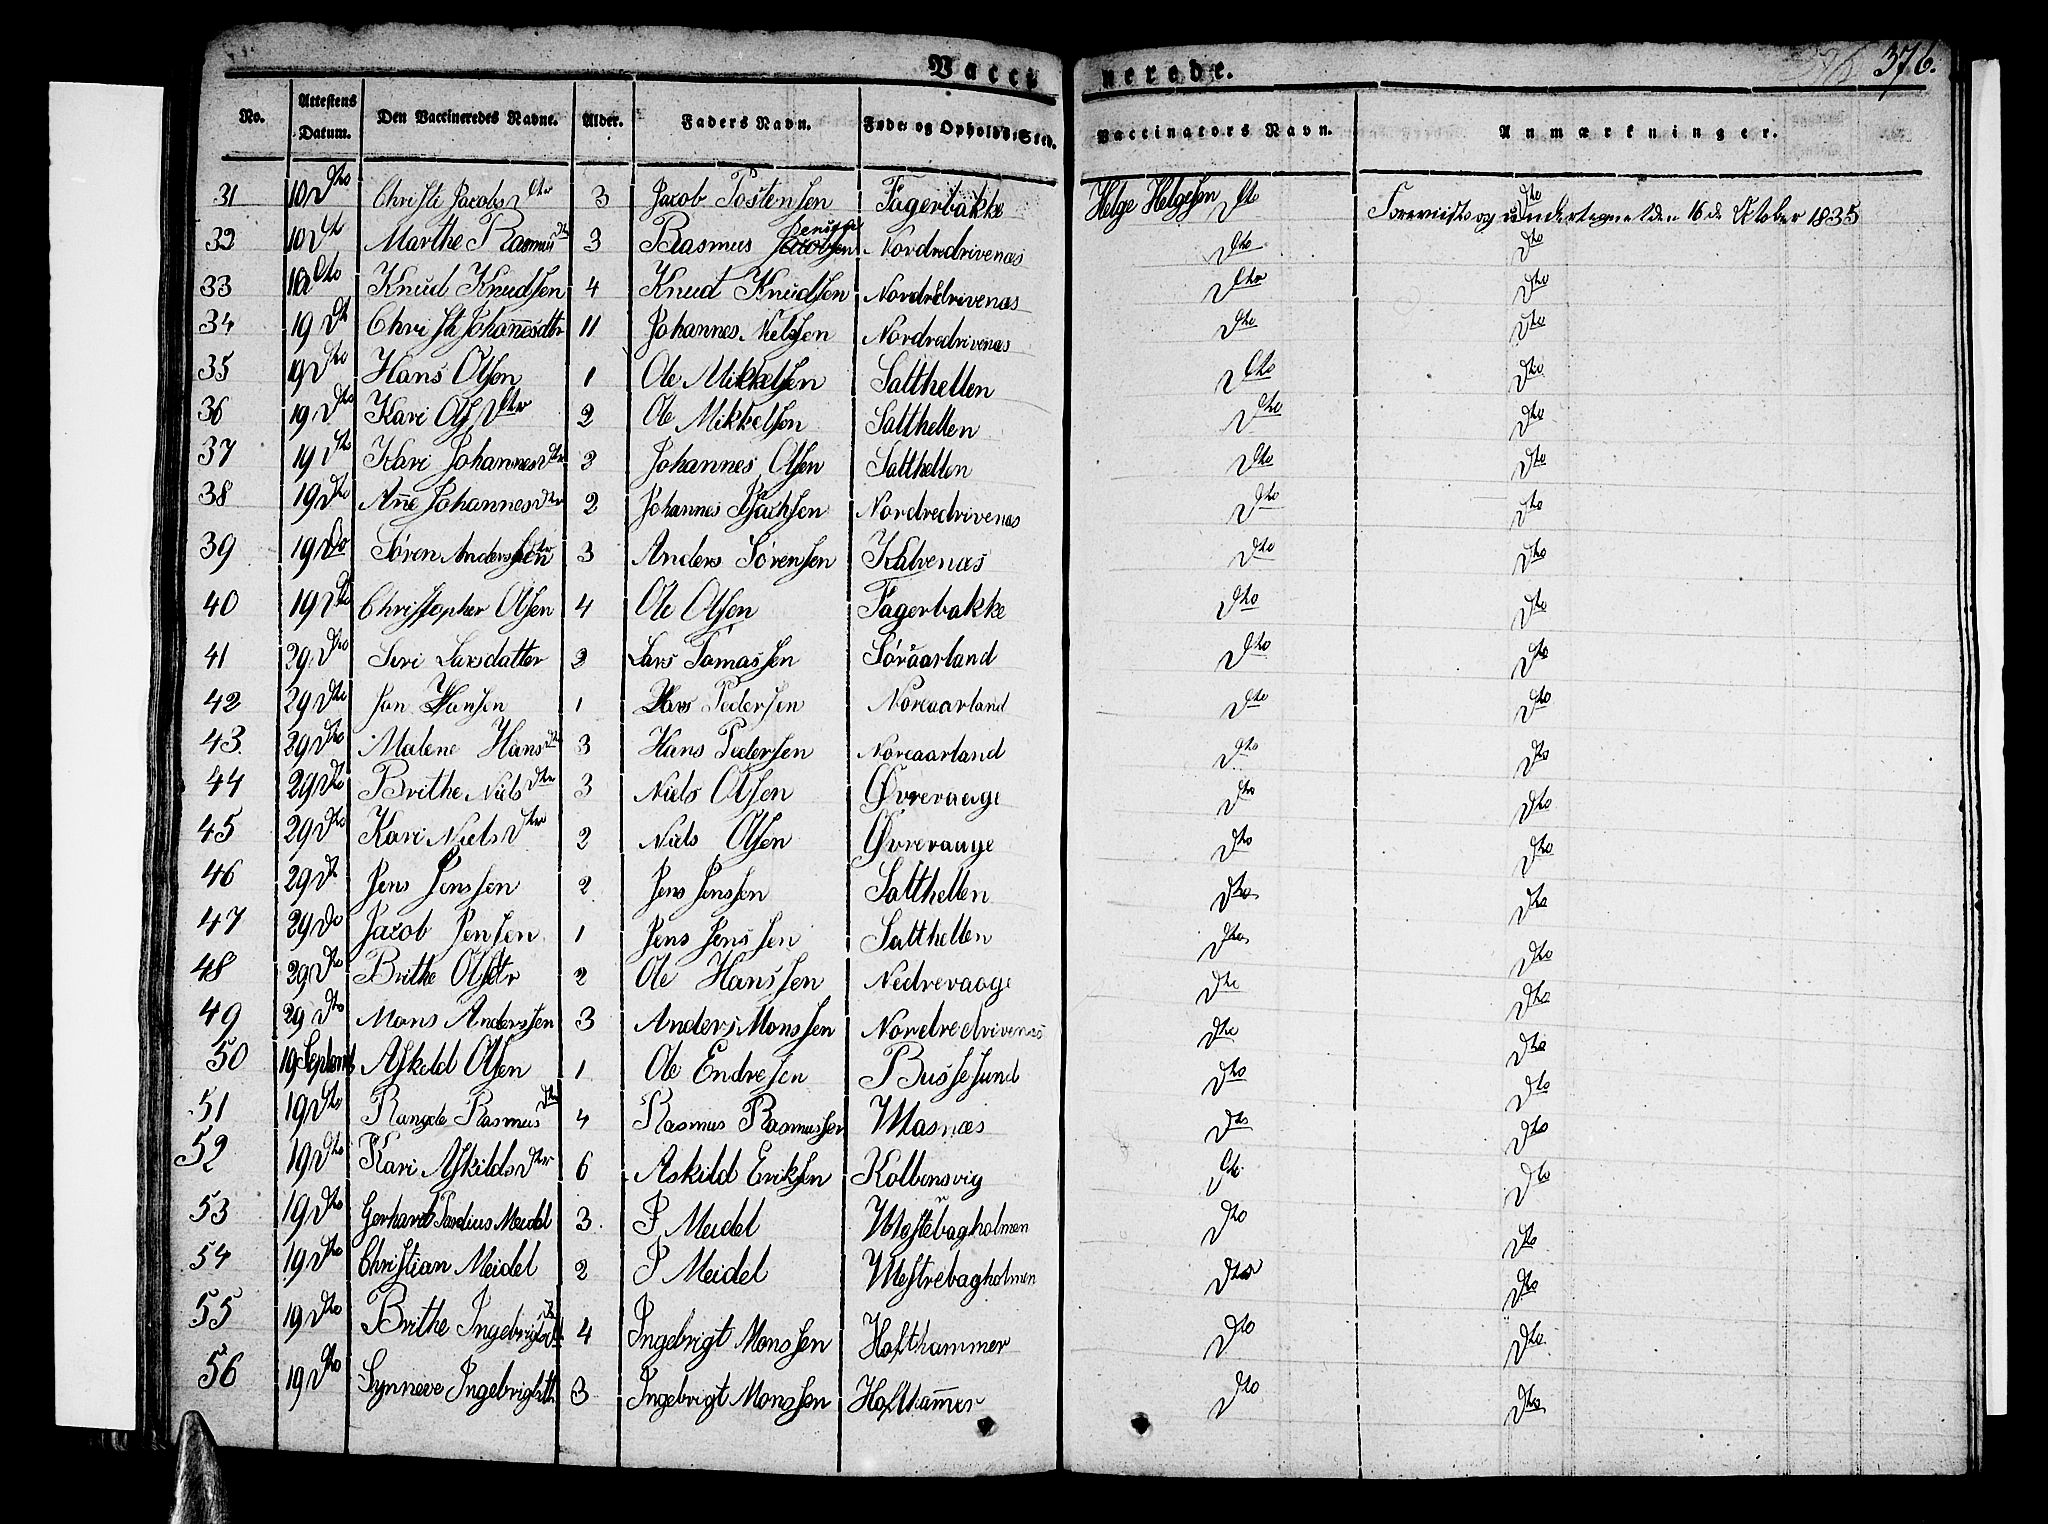 Vaccinerede. 376.
No. Attestens Datum. Den Vaccineredes Navne. Alder. Faders Navn. Føde- og Opholds-Sted. Vaccinators Navn. Anmærkninger.
31 10 Dto Christi Jacobs Dtr 3 Jacob Tostensen Fagerbakke Helge Helgesen Dto Dto
Foreviist og undertegnet den 16 de Oktober 1835
32 10 Dto Marthe Rasmus Dtr 3 Rasmus Jacobsen Nordredrivenæs Dto Dto
33 10 Dto Knud Knudsen 4 Knud Knudsen Nordredrivenæs Dto Dto
34 19 Dto Christi Johannesdtr 11 Johannes Nielsen Nordredrivenæs Dto Dto
35 19 Dto Hans Olsen 1 Ole Mikkelsen Salthellen Dto Dto
36 19 Dto Kari Ols Dtr 2 Ole Mikkelsen Salthellen Dto Dto
37 19 Dto Kari Johannes Dtr 2 Johannes Olsen Salthellen Dto Dto
38 19 Dto Anne Johannes Dtr 2 Johannes Isachsen Nordredrivenæs Dto Dto
39 19 Do Søren Anderssen 3 Anders Sørensen Kalvenæs Dto Dto
40 19 Dto Christopher Olsen 4 Ole Olsen Fagerbakke Dto Dto
41 29 Dto Siri Larsdatter 2 Lars Tomassen Søraarland Dto Dto
42 29 Dto Jon Hansen 1 Hans Pedersen Noreaarland Dto Dto
43. 29 Dto Malene Hans Dtr 3 Hans Pedersen Noreaarland Dto Dto
44 29 Dto Brithe Niels Dtr 3 Niels Olsen Øvrevaage Dto Dto
45 29 Dto Kari Niels Dtr 2 Niels Olsen Øvrevaage Dto Dto
46 29 Dt Jens Jenssen 2 Jens Jenssen Salthellen Dto Dto
47 29 Do Jacob Jensen 1 Jens Jenssen Salthellen Dto Dto
48 29 Dto Brithe Olsdtr 2 Ole Hanssen Nedrevaage Dto Dto
49 29 Dto Mons Anderssen 3 Anders Monssen Nordredrivenæs Dto Dto
50 19 Septemb Askild Olsen 1 Ole Endresen Bussesund Dto Dto
51 19 Dto Rangele Rasmus Dtr 4 Rasmus Rasmussen Masnæs Dto Dto
52 19 Dto Kari Askilds Dtr 6 Askild Eriksen Kolbensvig Dto Dto
53 19 Dto Gerhard Meidel 3. P Meidel Westrebagholmen Dto Dto
54 19 Dto Christian Meidel 2 P Meidel Westrebagholmen Dto Dto
55 19 Dto Brithe Ingebrigts Dtr 4 Ingebrigt Monssen Hofthammer Dto Dto
56 19 Dto Synneve Ingebrigtsdtr 3 Ingebrigt Monssen Hofthammer Dto Dto